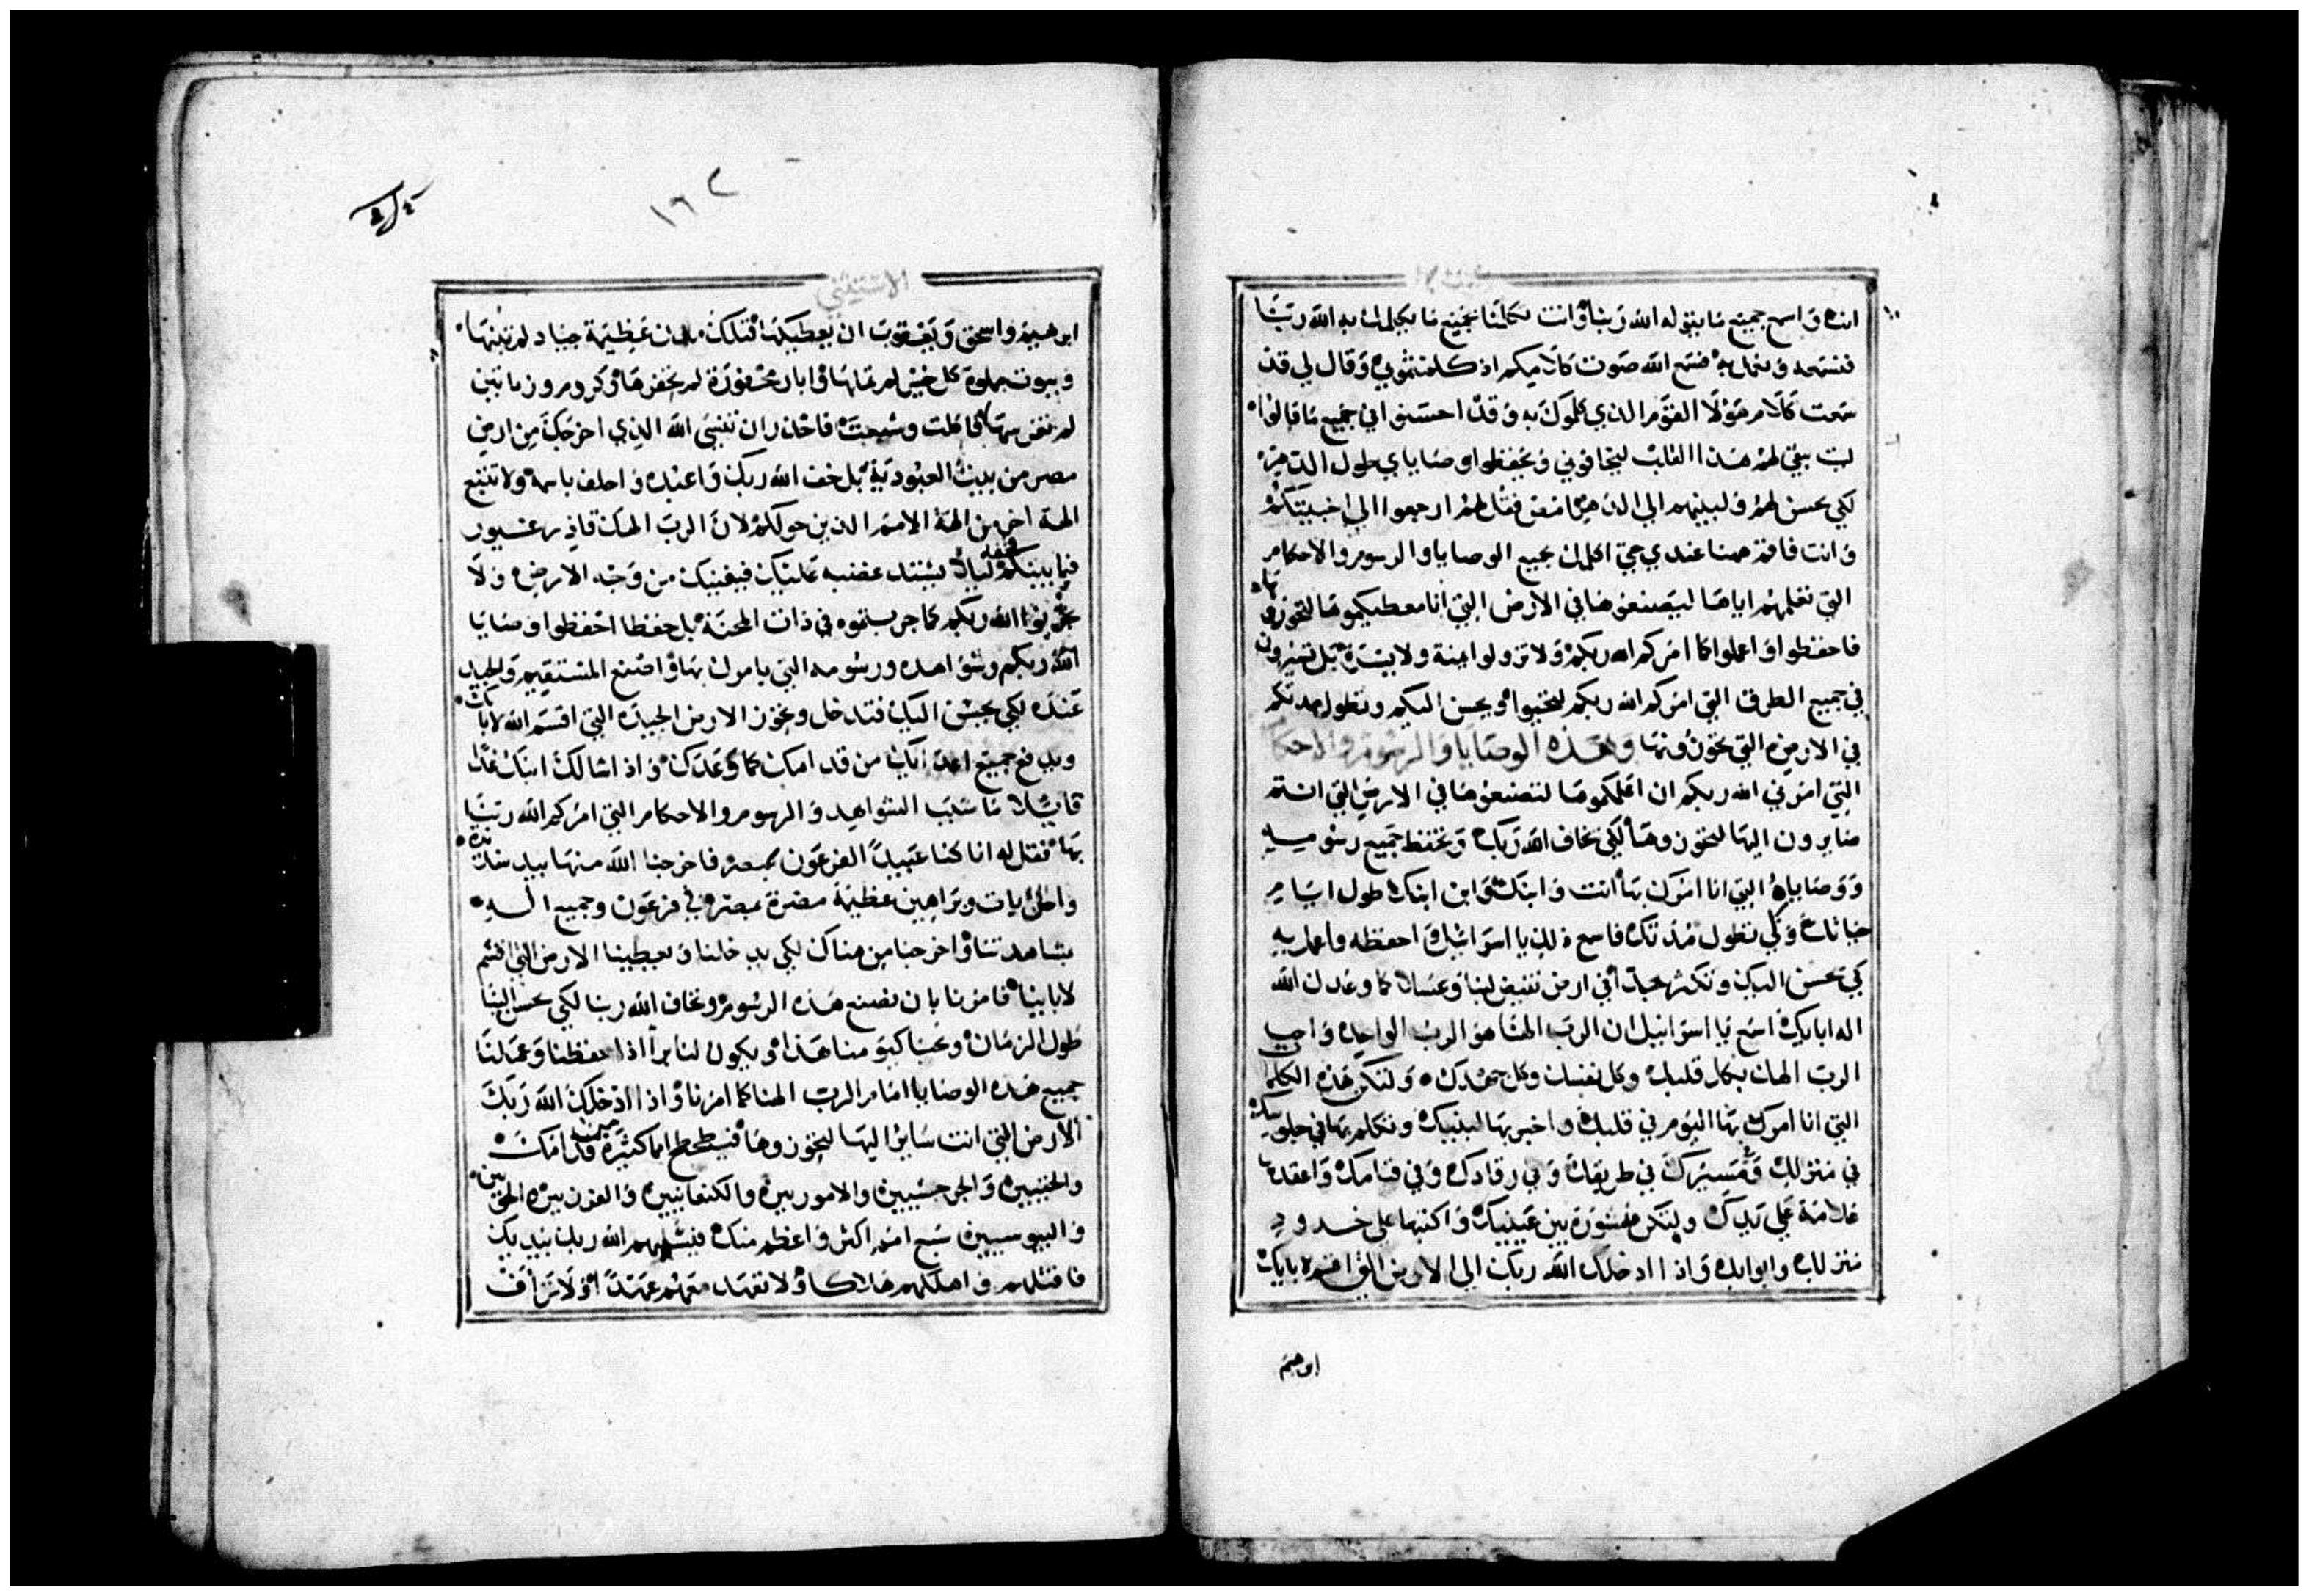 انت واسمع جميع ما يقوله الله ربنا وانت تكلمنا بجميع ما يكلمك به الله ربنا
فنسمعه ونعمل به فسمع الله صوت كلامكم اذ كلمتموني وقال لي قد
سمعت كلام هولا القوم الذي كلموك به وقد احسنوا في جميع ما قالوا
ليت يبقي لهم هذا القلب ليخافوني ويحفظوا وصاياي طول الدهر
لكي يحسن لهم ولبنيهم الي الدهر امض فقل لهم ارجعوا الي اخبيتكم
وانت فاقم ههنا عندي حتي اكلمك بجميع الوصايا والرسوم والاحكام
التي تعلمهم اياها ليصنعوها في الارض التي انا معطيكموها لتحوزوها
فاحفظوا واعملوا كما امركم الله ربكم ولا تزولوا يمنة ولا يسرة بل تسيرون
في جميع الطرق التي امركم الله ربكم لتحيوا ويحسن اليكم وتطول مدتكم
في الارض التي تحوزونها وهذه الوصايا والرسوم والاحكام
التي امرني الله ربكم ان اعلمكموها لتصنعوها في الارض التي انتم
صايرون اليها لتحوزوها لكي تخاف الله ربك وتحفظ جميع رسومه
ووصاياه التي انا امرك بها انت وابنك وابن ابنك طول ايام
حياتك وكي تطول مدتك فاسمع ذلك يا اسرائيل احفظه واعمل به
كي يحسن اليك وتكثر جدا في ارض تفيض لبنا وعسلا كما وعدك الله
اله ابايك اسمع يا اسرائيل ان الرب الهنا هو الرب الواحد واحب
الرب الهك بكل قلبك وكل نفسك وكل جهدك ولتكن هذه الكلمات
التي انا امرك بها اليوم في قلبك واخبر بها لبنيك وتكلم بها في جلوسك
في منزلك ومسيرك في طريقك وفي رقادك وفي قيامك واعقدها
علامة علي يدك ولتكن منشورة بين عينيك واكتبها علي خدود
منزلك وابوابك واذا ادخلك الله ربك الي الارض التي اقسم لابايك
ابرهيم
١٦٢
الاستثني
ابرهيم واسحق ويعقوب ان يعطيكها فتلك مدن عظيمة جياد لم تبنها
وبيوت مملوة كل خير لم تملها وابار محفورة لم تحفرها وكروم وزياتين
لم تغرسها فاكلت وشبعت فاحذر ان تنسي الله الذي اخرجك من ارض
مصر من بيت العبودية بل خف الله ربك واعبده واحلف باسمه ولا تتبع
الهة اخر من الهة الامم الذين حولكم لان الرب الهك قادر غيور
فيما بينكم ليلا يشتد غضبه عليك فيفنيك من وجه الارض ولا
تجربوا الله ربكم كما جربتموه في ذات المحنة بل حفظا احفظوا وصايا
الله ربكم وشواهده ورسومه التي يامرك بها واصنع المستقيم والجيد
عنده لكي يحسن اليك فتدخل وتحوز الارض الجيدة التي اقسم الله لاباتك
ويدفع جميع اعدايك من قدامك كما وعدك واذا سالك ابنك غدا
قايلا ما سبب الشواهد والرسوم والاحكام التي امركم الله ربنا
بها فقل له انا كنا عبيدا لفرعون بمصر فاخرجنا الله منها بيد شديدة
واحل ايات وبراهين عظيمة مضرة بمصر وفي فرعون وجميع اله
بشاهدتنا واخرجنا من هناك لكي يدخلنا ويعطينا الارض التي اقسم
لاباينا فامرنا بان نصنع هذه الرسوم ونخاف الله ربنا لكي يحسن الينا
طول الزمان ونحيا كيومنا هذا ويكون لنا برا اذا حفظنا وعملنا
جميع هذه الوصايا امام الرب الهنا كما امرنا واذا ادخلك الله ربك
الارض التي انت ساير اليها لتحوزوها فيطحطح امما كثيرة من قدامك
والحثيين والجرجسيين والاموريين والكنعانيين والفرزيين والحويين
واليبوسيين سبع امم اكثر واعظم منك فيسلمهم الله ربك بيديك
فاقتلهم واهلكهم هلاكا ولا تعهد معهم عهدا ولا تراف